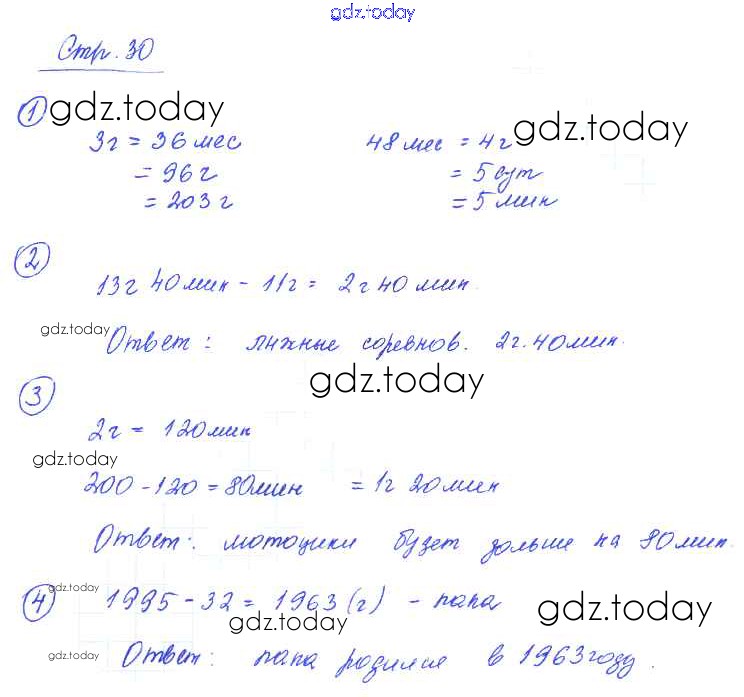 gdz.today
Стр. 30
① gdz.today
3г = 36 мес 48 мес = 4г gdz.today
= 96 г = 5 сут
= 203 г = 5 мин
②
13г 40 мин - 11г = 2г 40 мин.
gdz.today Ответ: лыжные соревнов. 2г. 40 мин.
③ gdz.today
2г = 120 мин
gdz.today
200 - 120 = 80 мин = 1г 20 мин
Ответ: мотоцикл будет дольше на 80 мин.
④ gdz.today 1995 - 32 = 1963 (г) - папа gdz.today
gdz.today
gdz.today Ответ: папа родился в 1963 году.